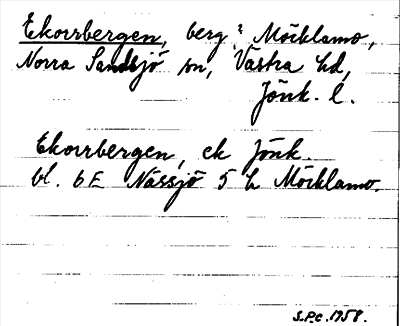 Ekorrbergen, berg i Möcklamo,
Norra Sandsjö sn, Västra hd,
Jönk. l.
Ekorrbergen, ek Jönk.
bl. 6E Nässjö 5 h Möcklamo.
S.P.c. 1958.